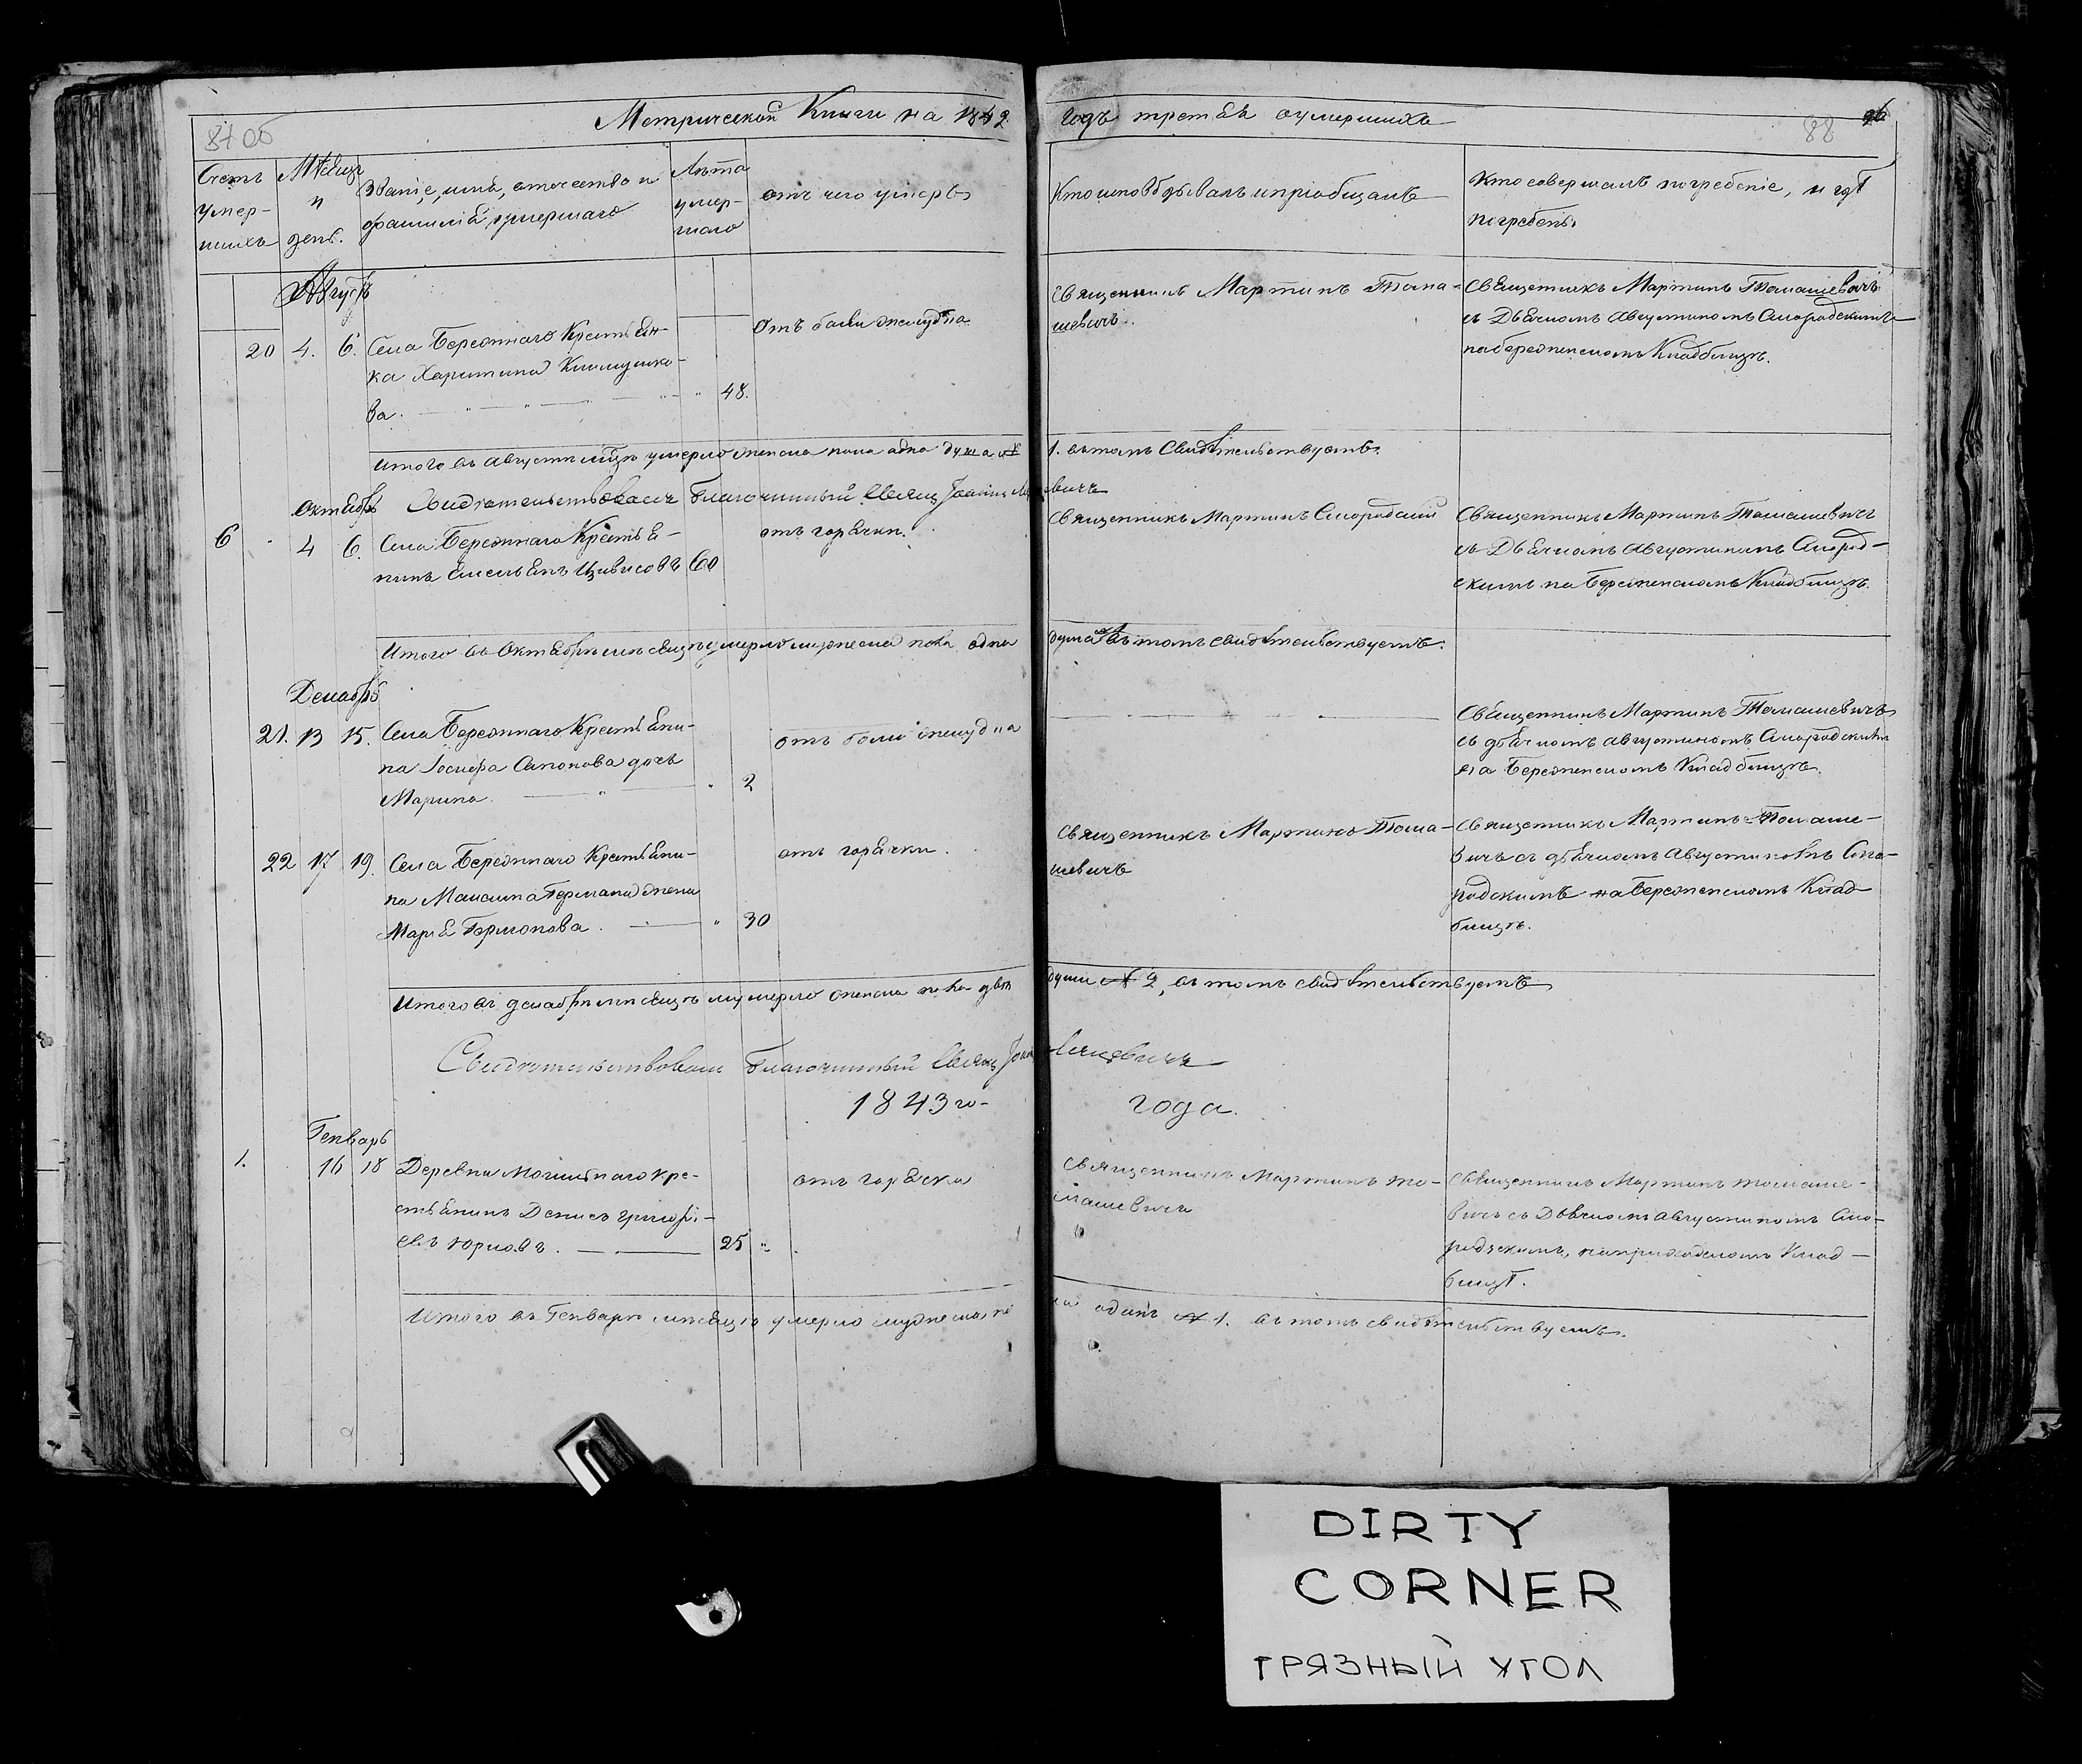 Метрической Книги на 1842 годъ третья оумершихъ
84 об
88
Счетъ умер-
шихъ
Месяцъ
и
день.
Званіе, имя, отечество и
фамилія умершаго
Лѣта
умер-
шаго
отъ чего умеръ
Кто исповѣдывалъ и пріобщалъ
Кто совершалъ погребеніе, и гдѣ
погребены
Августъ
20 4. 6. Села Бережнаго Крестьян-
ка Харитина Климушко-
ва. 48.
Отъ боли желудка
Священникъ Мартинъ Тома-
шевичъ.
Священникъ Мартинъ Томашевичъ
съ Дьячкомъ Августиномъ Смородскимъ
на бережненскомъ Кладбищѣ.
Итого въ августѣ м-цѣ умерло женска пола одна душа № 1. въ томъ свидѣтельствуетъ.
Свидѣтельствовалъ Благочинный Священ Іоаннъ
Октябрь
6 4 6. Села Бережнаго Крестья-
нинъ Емельянъ 60
отъ горячки.
Священникъ Мартинъ Смородскій
Священникъ Мартинъ Томашевичъ
съ Дьячкомъ Августиномъ Смород-
скимъ на Бережненскомъ Кладбищѣ.
Итого въ Октябрѣ месяцѣ умерло мужеска пола одна душа въ томъ свидѣтельствуетъ.
Декабрь
21. 13 15. Села Бережнаго Крестьяни-
на Іосифа Симонова дочь
Марина. 2
отъ боли желудка
Священникъ Мартинъ Томашевичъ
съ дьячкомъ августиномъ Смородскимъ
на Бережненскомъ Кладбищѣ.
22 17 19. Села Бережнаго Крестьяни-
на Максима Германа жена
Марья Германова. 30
отъ горячки.
Священникъ Мартинъ Тома-
шевичъ
Священникъ Мартинъ Томаше-
вичъ съ дьячкомъ Августиномъ Смо-
родскимъ на Бережненскомъ Клад-
бищѣ.
Итого въ декабрѣ месяцѣ умерло женска пола двѣ души № 2, въ томъ свидѣтельствуетъ
Свидѣтельствовалъ Благочинный Священ Іоан
1843 го- года.
Генварь
1. 16 18 Деревни Могильнаго кре-
стьянинъ Денисъ Григорі-
евъ Юрковъ. 25
отъ горячки
Священникъ Мартинъ То-
машевичъ
Священникъ Мартинъ Томаше-
вичъ съ Дьячкомъ Августиномъ Смо-
родскимъ, на приходскомъ Клад-
бищѣ.
Итого въ Генварѣ месяцѣ умерло мужеска по ла одинъ № 1. въ томъ свидѣтельствуетъ.
DIRTY
CORNER
ГРЯЗНЫЙ УГОЛ